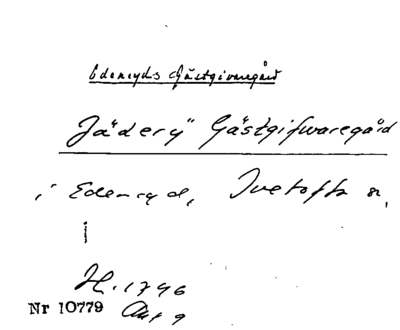 Edenryds Gästgivaregård
"Jädery" Gästgifwaregård
i Edenryd, Ivetofta sn,
H. 1746
Nr 10779 Akt 9